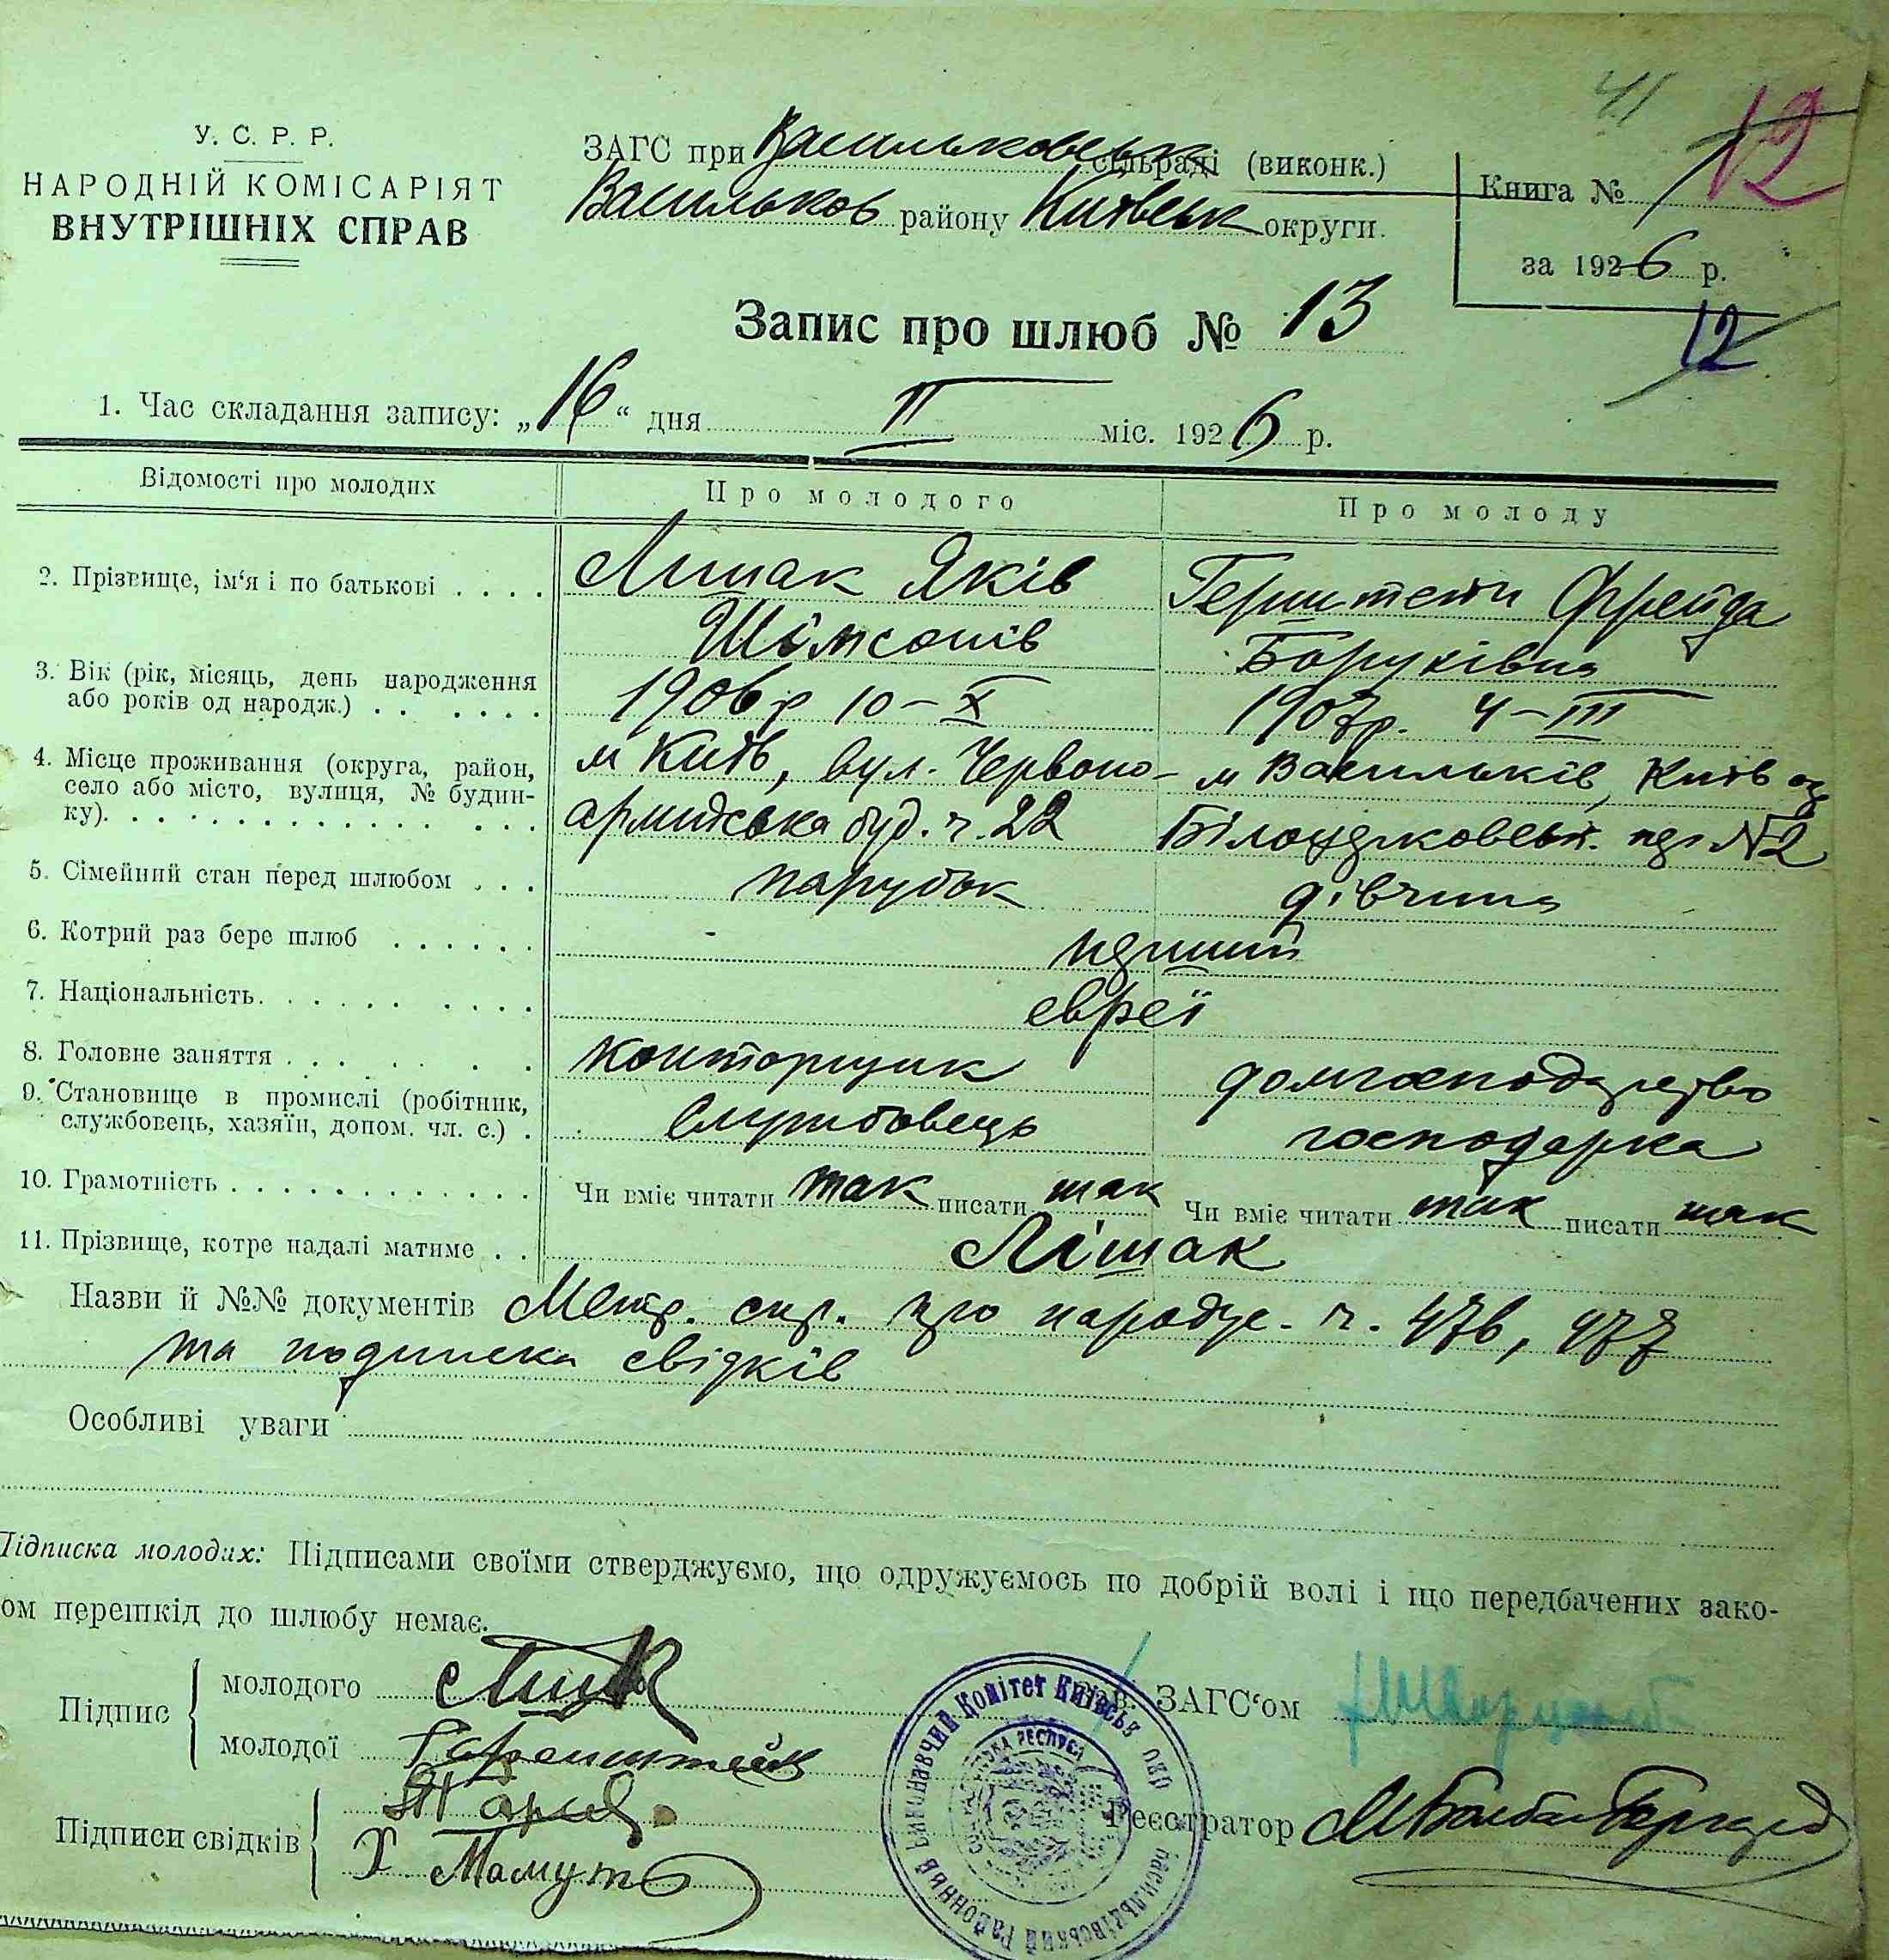 41
12
У. С. Р. Р.
НАРОДНІЙ КОМІСАРІЯТ
ВНУТРІШНІХ СПРАВ
ЗАГС при Васильковськ сільраді (виконк.)
Васильков району Київськ округи.
Книга № 1
за 1926 р.
12
Запис про шлюб № 13
1. Час складання запису: „16“ дня II міс. 1926 р.
Відомості про молодих Про молодого Про молоду
2. Прізвище, ім‘я і по батькові . . . . Лишак Яків Герштейн Фрейда
Шімсонів Борухівна
3. Вік (рік, місяць, день народження
або років од народж.) . . . . . . 1906 р 10 – X 1907р. 4 – III
4. Місце проживання (округа, район, м Київ, вул. Червоно- м Васильків, Київ окр
село або місто, вулиця, № будин-
ку). . . . . . . . . . . . . . . . армійська буд. ч. 22 №2
5. Сімейний стан перед шлюбом . . . парубок дівчина
6. Котрий раз бере шлюб . . . . . . перший
7. Національність. . . . . . . . . . евреї
8. Головне заняття . . . . . . . . конторщик домгосподарство
9. Становище в промислі (робітник,
службовець, хазяїн, допом. чл. с.) . Службовець господарка
10. Грамотність . . . . . . . . . . . . Чи вміє читати так писати так Чи вміє читати так писати так
11. Прізвище, котре надалі матиме . . Лішак
Назви й №№ документів Метр. спр. про народж. ч. 476, 477
та подписка свідків
Особливі уваги
Підписка молодих: Підписами своїми стверджуємо, що одружуємось по добрій волі і що передбачених зако-
ом перешкід до шлюбу немає.
Підпис
молодого
Зав. ЗАГС‘ом
молодої Геренштейн
Підписи свідків
Реєстратор
Х Мамут
Васильківський Районний Виконавчий Комітет Київськ окр